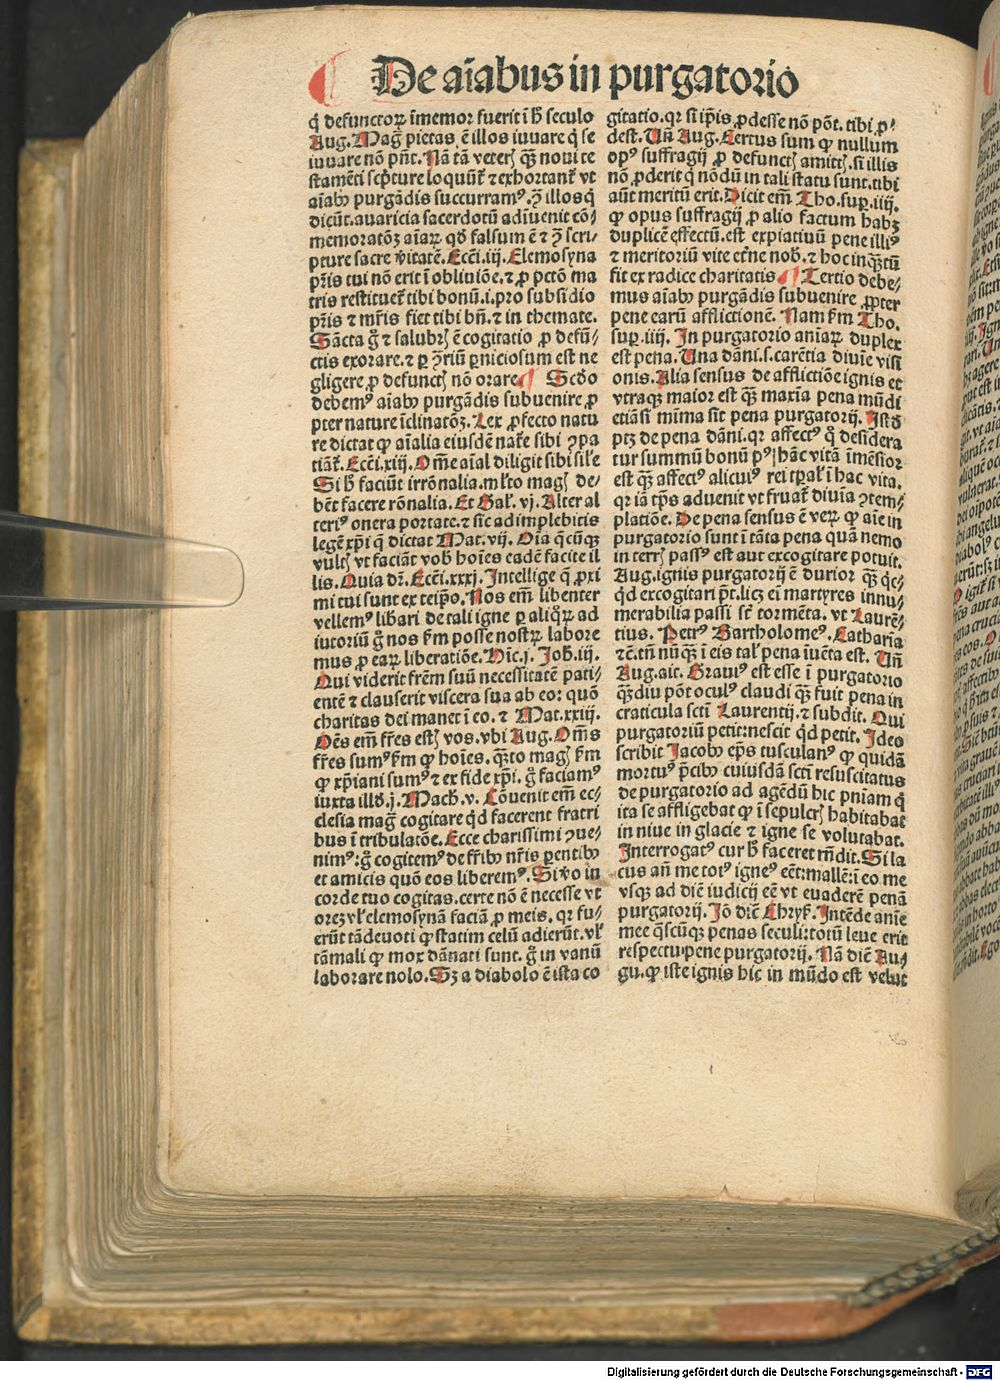 De aīabus in purgatorio
q̄ defunctoꝝ īmemor fuerit ī h̄ seculo
Aug. Mag̃ pietas ē illos iuuare q̄ se
iuuare nō pn̄t. Nā tā veterꝭ qꝫ noui te
stamēti sc̄pture loquūt̃ ⁊ exhortant̃ vt
aīabꝰ purgādis succurramꝰ. ꝯ̄ illos q̄
dicūt. auaricia sacerdotū adīuenit cō⸗
memoratōꝫ aīaꝝ qd̄ falsum ē ⁊ ꝯ̄ scri⸗
pture sacre v̄itatē. Ecc̄i. iij. Elemosyna
pr̄is tui nō erit ī obliuiōe. ⁊ ꝓ pctō ma
tris restituet̃ tibi bonū. i. pro subsidio
pr̄is ⁊ mr̄is fiet tibi bn̄. ⁊ in themate.
Sācta g̊ ⁊ salubrꝭ ē cogitatio ꝓ defū⸗
ctis exorare. ⁊ ꝑ ꝯ̄riū ꝑniciosum est ne
gligere ꝓ defunctꝭ nō orare ¶ Scd̄o
debemꝰ aīabꝰ purgādis subuenire ꝓ
pter nature īclinatōꝫ. Lex ꝓfecto natu
re dictat ꝙ aīalia eiusdē nat̃e sibi ꝯpa
tiāt̃. Ecc̄i. xiij. Om̄e aīal diligit sibi sil̃e
Si h̄ faciūt irrōnalia. ml̃to magꝭ de⸗
bēt facere rōnalia. Et Gal̃. vj. Alter al
teriꝰ onera portate. ⁊ sic adimplebitis
legē xp̄i q̄ dictat Mat. vij. Oīa q̄cūqꝫ
vultꝭ vt faciāt vob̄ hoīes eadē facite il
lis. Quia dr̄. Ecc̄i. xxxj. Intellige q̄ ꝓxi
mi tui sunt ex teip̄o. Nos em̄ libenter
vellemꝰ lib̄ari de tali igne ꝑ aliqꝝ ad
iutoriū g̊ nos fm̄ posse nostꝝ labore
mus ꝓ eaꝝ liberatiōe. Hīc. j. Joh̄. iij.
Qui viderit frēm suū necessitatē pati⸗
entē ⁊ clauserit viscera sua ab eo: quō
charitas dei manet ī eo. ⁊ Mat. xxiij.
Oēs em̄ fr̄es estꝭ vos. vbi Aug. Om̄s
fr̄es sumꝰ fm̄ ꝙ hoīes. qꝫto magꝭ fm̄
ꝙ xp̄iani sumꝰ ⁊ ex fide xp̄i. g̊ faciamꝰ
iuxta illd̄. j. Mach̄. v. Cōuenit em̄ ec⸗
clesia mag̃ cogitare qd̄ facerent fratri
bus ī tribulatōe. Ecce charissimi ꝯue⸗
nimꝰ: g̊ cogitemꝰ de fr̄ibꝰ nr̄is ꝑentibꝰ
et amicis quō eos liberemꝰ. Si v̄o in
corde tuo cogitas. certe nō ē necesse vt
oreꝫ vl̃ elemosynā faciā ꝓ meis. qꝛ fu⸗
erūt tā deuoti ꝙ statim celū adierūt. vl̃
tā mali ꝙ mox dānati sunt. g̊ in vanū
laborare nolo. Sꝫ a diabolo ē ista co
gitatio. qꝛ si ip̄is ꝓdesse nō pōt. tibi ꝓ⸗
dest. Un̄ Aug. Certus sum ꝙ nullum
opꝰ suffragij ꝓ defunctꝭ amittꝭ. si illis
nō ꝓderit q̄ nōdū in tali statu sunt. tibi
aūt meritū erit. Dicit em̄ Tho. suꝑ. iiij.
ꝙ opus suffragij ꝓ alio factum habꝫ
duplicē effectū. est expiatiuū pene illiꝰ
⁊ meritoriū vite et̃ne nob̄. ⁊ hoc inqꝫtū
fit ex radice charitatis ¶ Tertio debe⸗
mus aīabꝰ purgādis subuenire ꝓpter
pene earū afflictionē. Nam fm̄ Tho.
suꝑ. iiij. In purgatorio aniaꝝ duplex
est pena. Una dāni. s. carētia diuīe visi
onis. Alia sensus de afflictiōe ignis et
vtraqꝫ maior est qꝫ maxīa pena mūdi
etiāsi mīma sit pena purgatorij. Istd̄
ptꝫ de pena dāni. qꝛ affectꝰ q̊ desidera
tur summū bonū pꝰ hāc vitā īmēsior
est qꝫ affectꝰ alicuiꝰ rei tꝑal̃ ī hac vita.
qꝛ iā tp̄s aduenit vt fruat̃ diuīa ꝯtem⸗
platiōe. De pena sensus ē veꝝ ꝙ aīe in
purgatorio sunt ī tāta pena quā nemo
in terrꝭ passꝰ est aut excogitare potuit.
Aug. ignis purgatorij ē durior qꝫ qc̄⸗
qd̄ excogitari pt̄. licꝫ ei martyres innu⸗
merabilia passi st̄ tormēta. vt Laurē⸗
tius. Petrꝰ Bartholomeꝰ. Catharīa
⁊c̄. tn̄ nūqꝫ ī eis tal̃ pena īuēta est. Un̄
Aug. ait. Grauiꝰ est esse ī purgatorio
qꝫdiu pōt oculꝰ claudi qꝫ fuit pena in
craticula sctī Laurentij. ⁊ subdit. Qui
purgatoriū petit: nescit qd̄ petit. Ideo
scribit Jacobꝰ ep̄s tusculanꝰ ꝙ quidā
mortuꝰ p̄cibꝰ cuiusdā sctī resuscitatus
de purgatorio ad agēdū hic pn̄iam q̄
ita se affligebat ꝙ ī sepulcrꝭ habitabat
in niue in glacie ⁊ igne se volutabat.
Interrogatꝰ cur h̄ faceret rn̄dit. Si la
cus an̄ me totꝰ igneꝰ eēt: mallē: ī eo me
vsqꝫ ad diē iudicij eē vt euaderē penā
purgatorij. Jō diē Chryſ. Intēde anie
mee q̄scūqꝫ penas seculi: totū leue erit
respectu pene purgatorij. Nā diē Au⸗
gu. ꝙ iste ignis hic in mūdo est velut
Digitalisierung gefördert durch die Deutsche Forschungsgemeinschaft - DFG